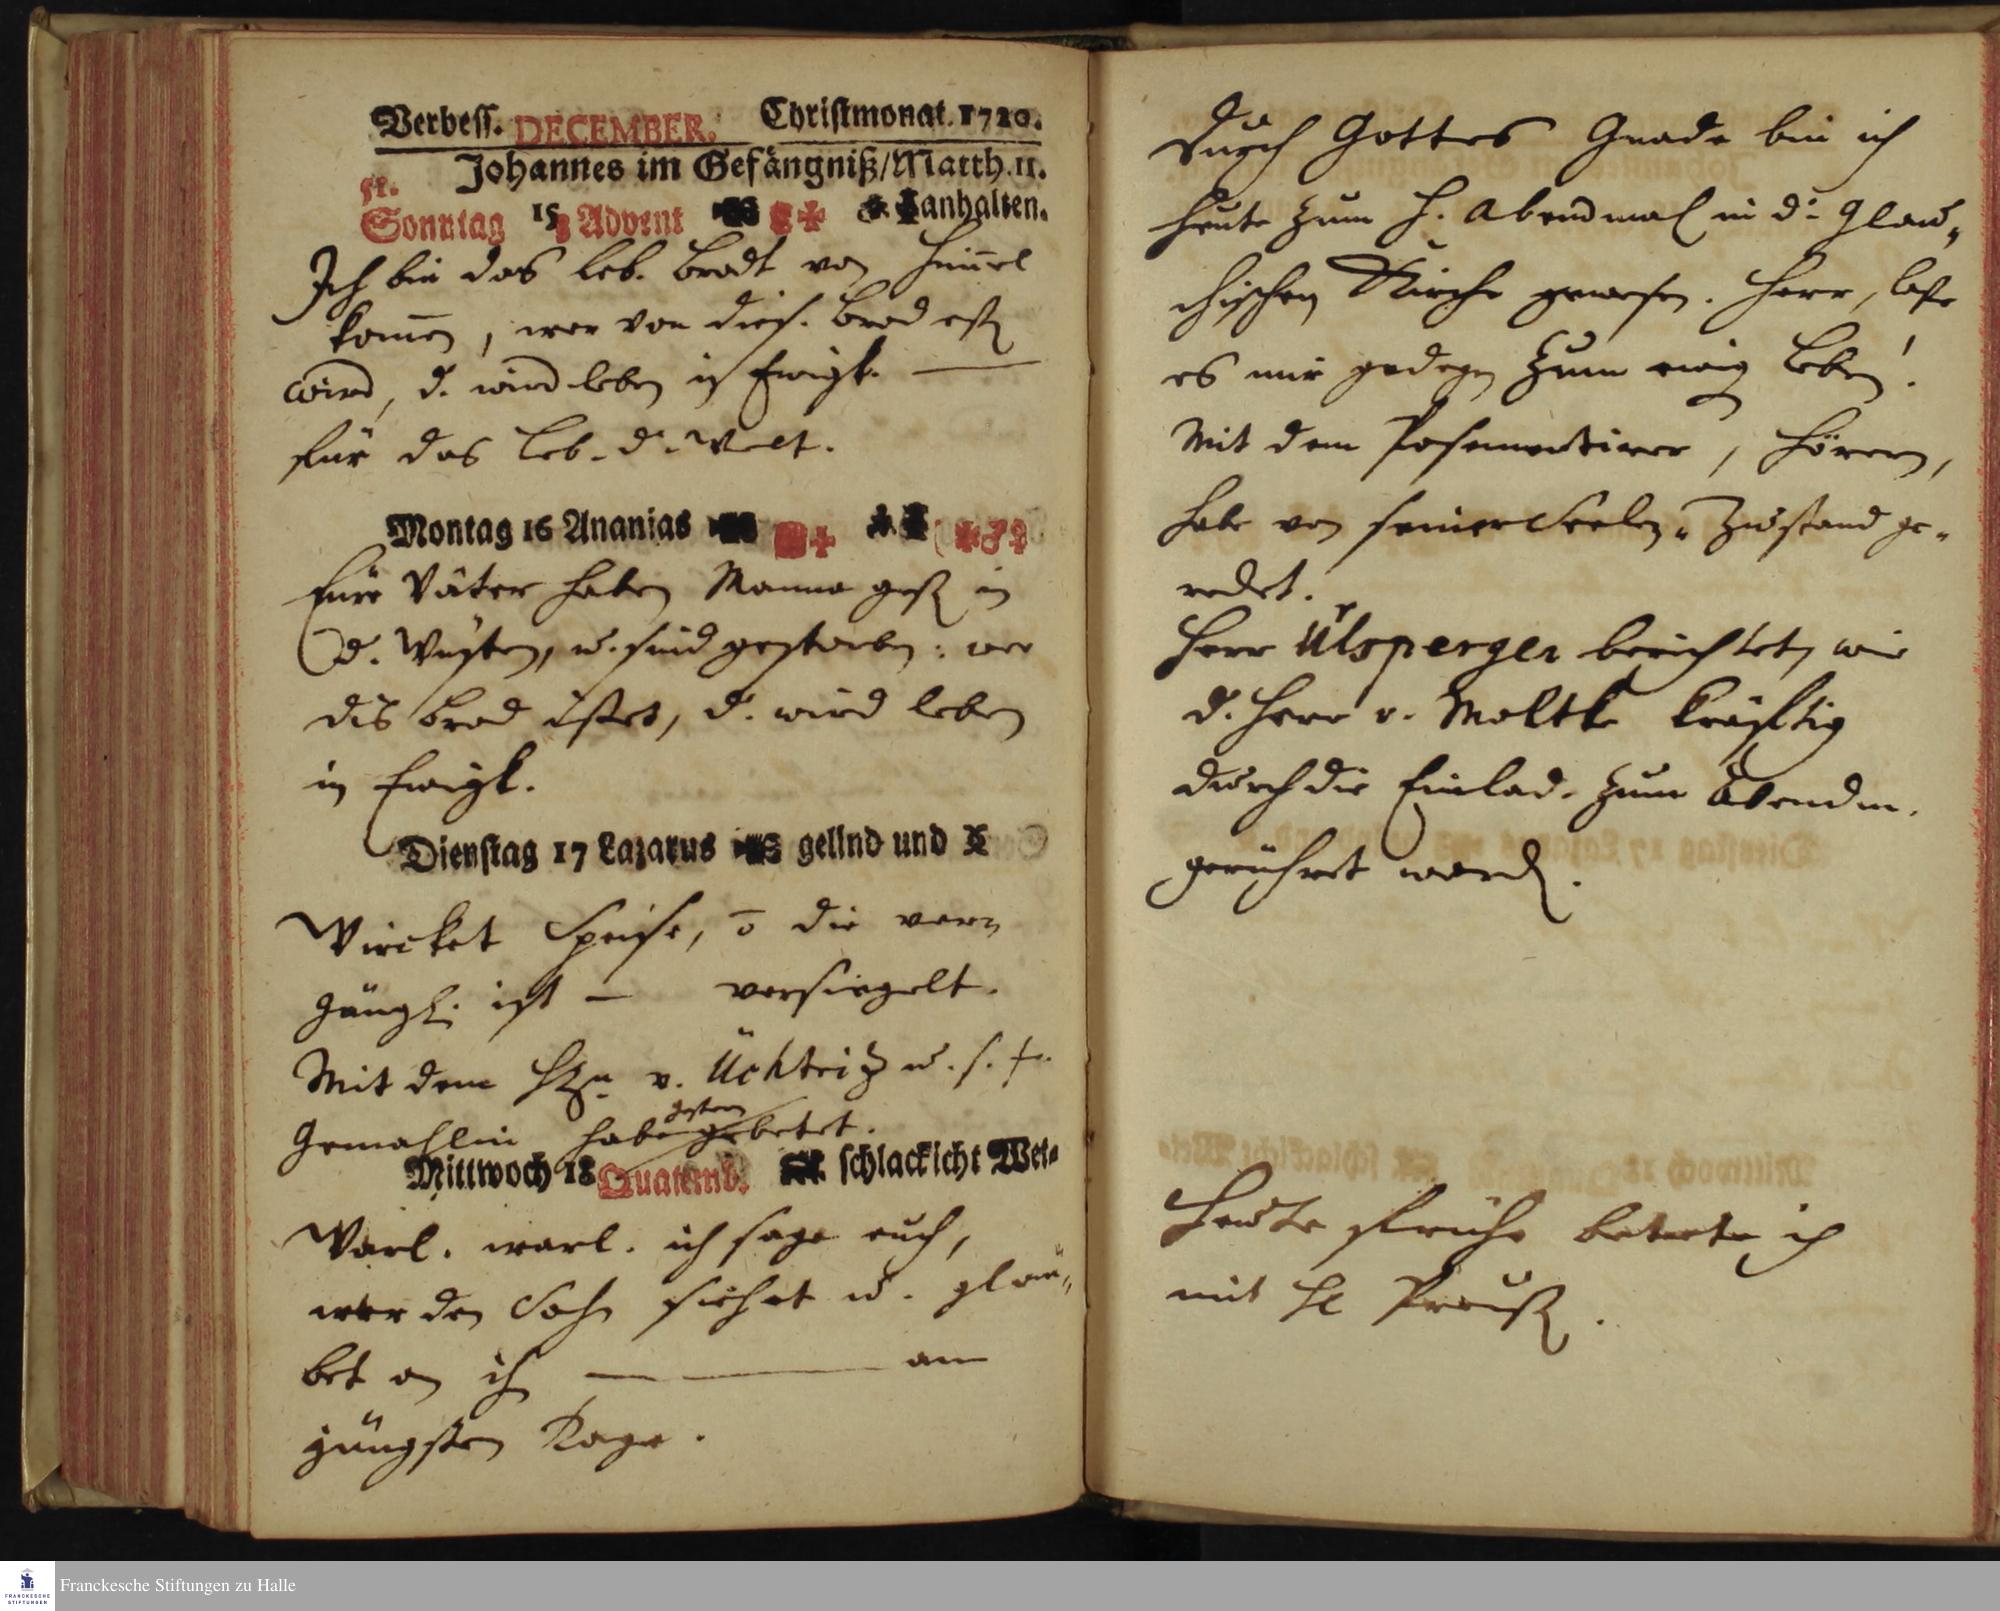 Verbess. DECEMBER. Christmonat. 1720.
Johannes im Gefängniß/Matth. 11.
Sonntag 15 3 Advent anhalten.
Ich bin das leb. Brodt von Himel
komen, wer von dies. Brod eßen
wird, d. wird leben in Ewigk. —
für das Leb. d. Welt.
Montag 16 Ananias
Eure Väter haben Manna geßen in
d. Wüsten, u. sind gestorben: wer
dis Brod ißet, d. wird leben
in Ewigk.
Dienstag 17 Lazarus gelind und
Wircket Speise, die ver-
gängl. ist — versiegelt.
Mit dem v. Üchtritz u. s. Fr.
Gemahlin habe gestern gebetet.
Mittwoch 18 Quatemb. schlackicht Wet-
Warl. warl. ich sage euch,
wer den Sohn siehet u. gläu-
bet an ihn — am
jüngsten Tage.
Durch Gottes Gnade bin ich
heute zum H. Abendmahl in d. Glau-
chischen Kirche gewesen. Herr, laße
es mir gedeyen zum ewig Leben!
Mit dem Posementirer, Hörern,
habe von seiner Seelen-Zustand ge-
redet.
Herr Ulsperger berichtet, wie
d. Herr v. Moltke kräfftig
durch die Einlad. zum Abendm.
gerühret worden.
Heute frühe betete ich
mit H. Preuß.
FRANCKESCHE
STIFTUNGEN
Franckesche Stiftungen zu Halle